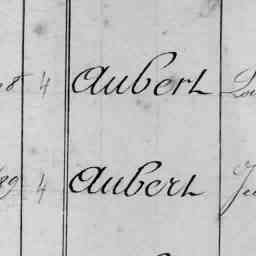 8 4 Aubert
89 4 Aubert